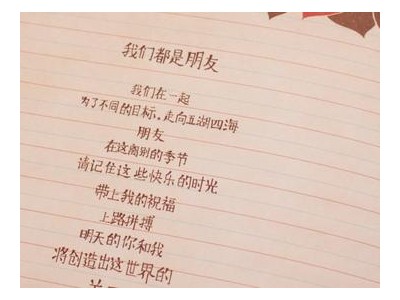 我们都是朋友
我们在一起
为了不同的目标，走向五湖四海
朋友
在这离别的季节
请记住这些快乐的时光
带上我的祝福
上路拼搏
明天的你和我
将创造出这世界的